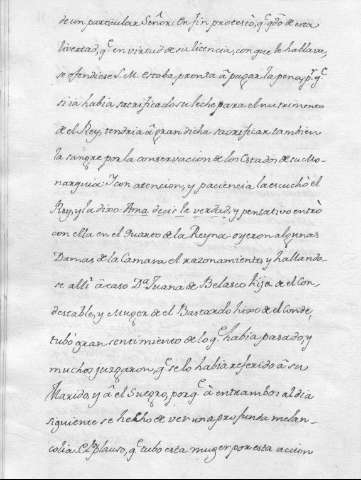 de un particular Señor. En fin protestò, qᵉ qdo de esta
livertad, qᵉ en virtud de su licencia, con que le hablava,
se ofendiese S. M. estaba pronta à pagar la pena, pʳ qᵉ
si se habia sacrificado su leche para el nutrimento
de el Rey, tendria à gran dicha sacrificar tambien
la sangre por la conservacion de los Estados de su Mo-
narquia. Y con atencion, y paciencia la escuchò el
Rey, y la dixo: Ama decis la verdad, y pensativo entrò
con ella en el Quarto de la Reyna. oyeron algunas
Damas de la Camara el razonamiento, y hallando-
se alli à caso Dᵃ Juana de Belasco hija de el Con-
destable, y Muger de el Bastardo hixo de el Conde,
tubo gran sentimiento de lo qᵉ habia pasado, y
muchos juzgaron, qᵉ se lo habia referido à su
Marido, y à el Suegro, porqᵉ à entrambos al dia
siguiente se hecho de ver una profunda melan-
colia. El Aplauso, qᵉ tubo esta muger por esta accion